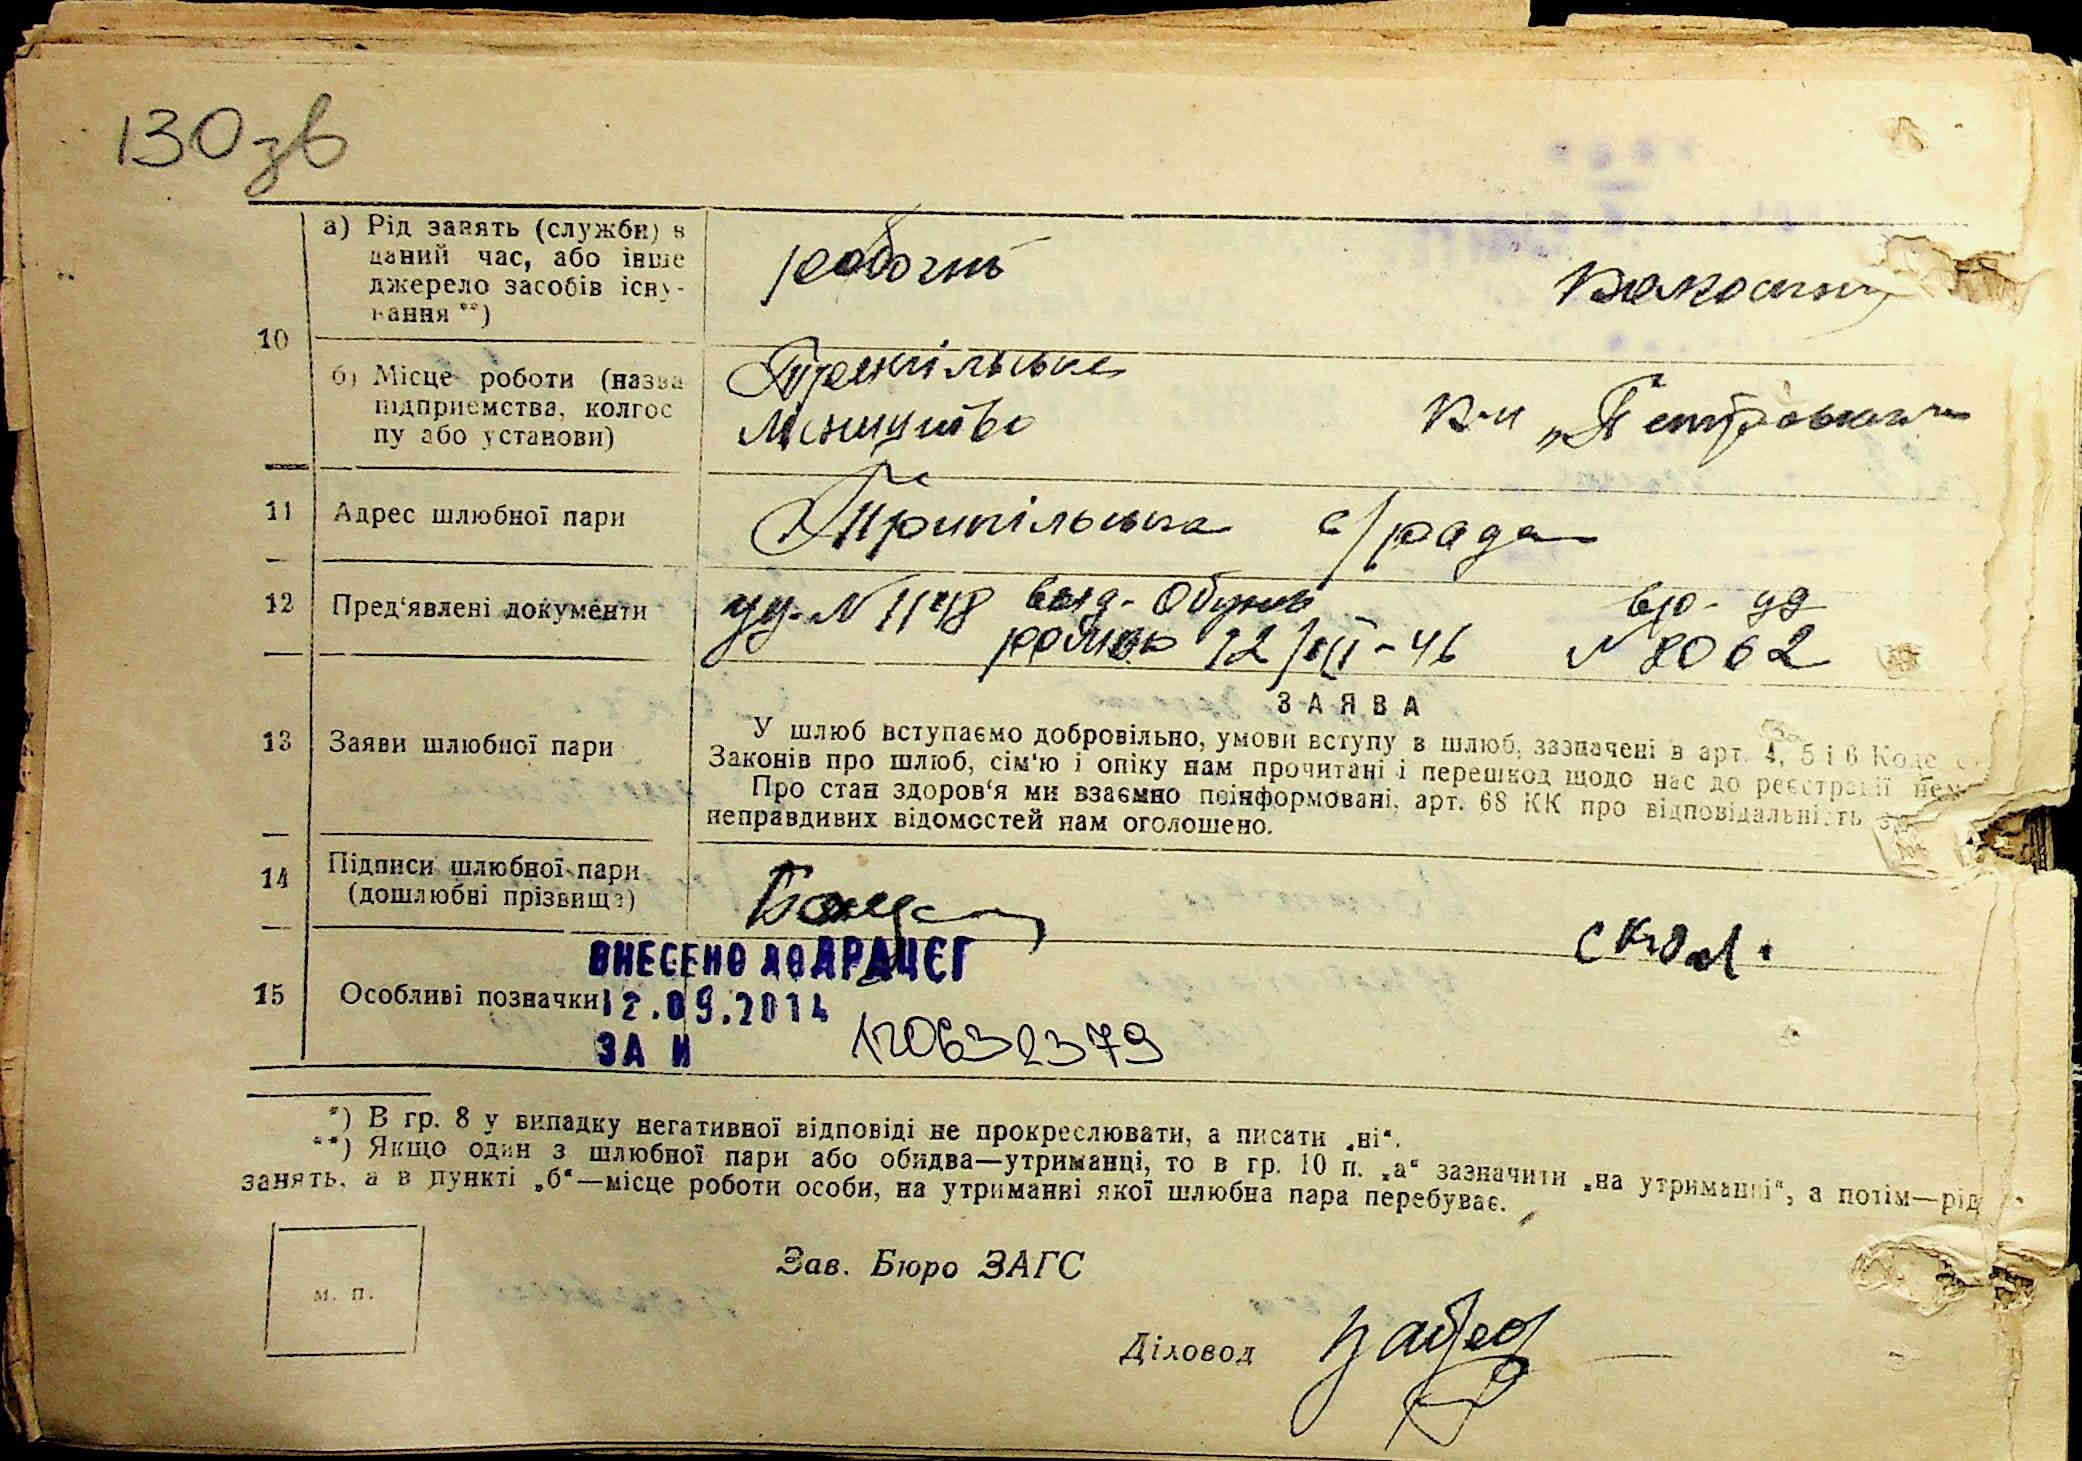 130зв
а) Рід занять (служби) в
даний час, або інше
джерело засобів існу-
вання **)
робочий
10
б) Місце роботи (назва
підприємства, колгос
пу або установи)
Трипільське
лісництво
к-п „Петровськ
11 Адрес шлюбної пари
Трипільська с/рада
12 Пред‘явлені документи
уд. № 1148 выд. Обухів
вр - уд
12/III-46 № 8062
13 Заяви шлюбної пари
ЗАЯВА
У шлюб вступаємо добровільно, умови вступу в шлюб, зазначені в арт. 4, 5 і 6 Коде
Законів про шлюб, сім‘ю і опіку нам прочитані і перешкод щодо нас до реєстрації нем
Про стан здоров‘я ми взаємно поінформовані, арт. 68 КК про відповідальність за
неправдивих відомостей нам оголошено.
14 Підписи шлюбної пари
(дошлюбні прізвища)
15 Особливі позначки
ВНЕСЕНО ДО ДРАЦСГ
12.09.2014
ЗА И 120632379
*) В гр. 8 у випадку негативної відповіді не прокреслювати, а писати „ні“.
**) Якщо один з шлюбної пари або обидва—утриманці, то в гр. 10 п. „а“ зазначити „на утриманні“, а потім—рід
занять, а в пункті „б“—місце роботи особи, на утриманні якої шлюбна пара перебуває.
м. п.
Зав. Бюро ЗАГС
Діловод